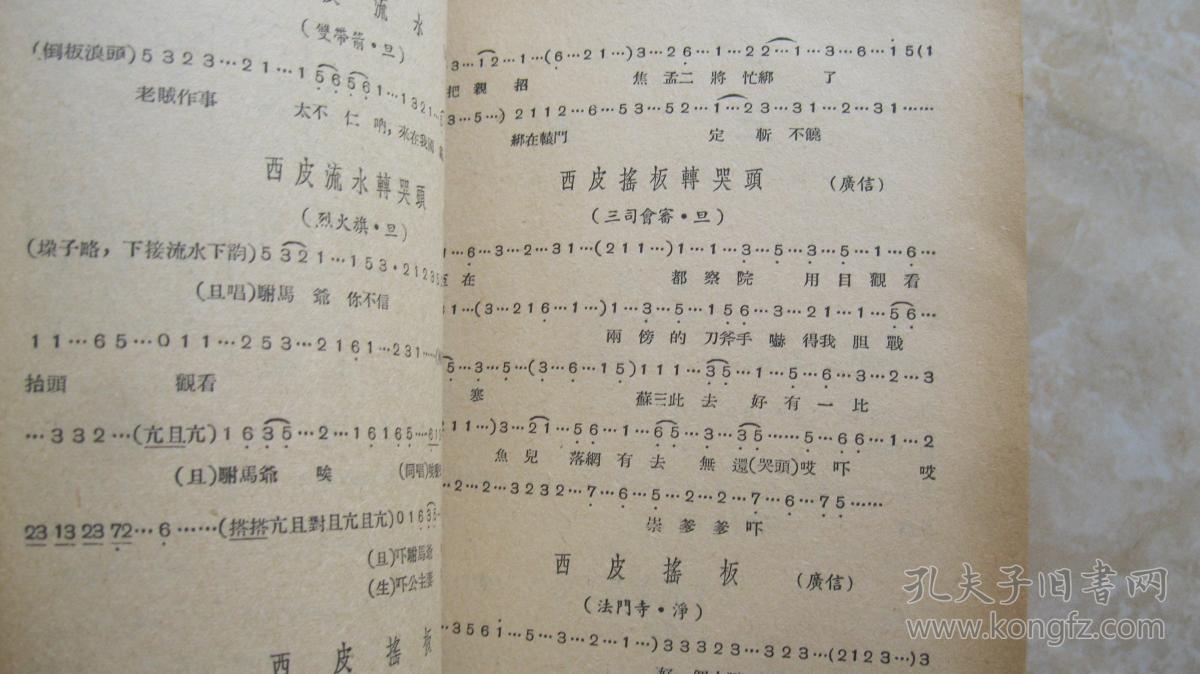 流水
(雙帶箭·旦)
(倒板浪頭) 5 3 2 3 ··· 2 1 ··· 1 5 6 5 6 1 ··· 1 3 2 1
老賊作事 太不仁吶,來在我國
西皮流水轉哭頭
(烈火旗·旦)
(垜子略,下接流水下韵) 5 3 2 1 ··· 1 5 3 · 2 1 2 3 5
(旦唱)駙馬爺 你不信
1 1 ··· 6 5 ··· 0 1 1 ··· 2 5 3 ··· 2 1 6 1 ··· 2 3 1 ······
抬頭 觀看
··· 3 3 2 ··· (亢且亢) 1 6 3 5 ··· 2 ··· 1 6 1 6 5 ···
(旦)駙馬爺 唉 (同唱)
23 13 23 72 ··· 6 ······ (搭搭亢且對且亢且亢) 0 1 6 3 5
(旦)吓駙馬爺
(生)吓公主
西皮搖板
3 ··· 1 2 ··· 1 ··· (6 ··· 2 1 ···) 3 ··· 2 6 ··· 1 ··· 2 2 ··· 1 ··· 3 ··· 6 ··· 1 5 (1
把親招 焦孟二將忙綁了
3 ··· 5 ···) 2 1 1 2 ··· 6 ··· 5 3 ··· 5 2 ··· 1 ··· 2 3 ··· 3 1 ··· 2 ··· 3 1 ······
綁在轅門 定斬不饒
西皮搖板轉哭頭 (廣信)
(三司會審·旦)
1 ··· 6 ··· 3 ··· 2 ··· 3 1 ··· (2 1 1 ···) 1 ··· 1 ··· 3 ··· 5 ··· 3 ··· 5 ··· 1 ··· 6 ···
至在 都察院 用目觀看
1 ··· (3 ··· 2 1 6 ··· 1 ···) 1 ··· 3 ··· 5 ··· 1 5 6 ··· 3 ··· 2 1 ··· 1 ··· 5 6 ···
兩傍的刀斧手嚇得我胆戰
5 ··· 3 ··· 5 ··· (3 ··· 6 ··· 1 5) 1 1 1 ··· 3 5 ··· 1 ··· 5 ··· 6 ··· 3 ··· 2 ··· 3
寒 蘇三此去 好有一比
2 1 1 ···) 3 ··· 2 1 ··· 5 6 ··· 1 ··· 6 5 ··· 3 ··· 3 5 ······ 5 ··· 6 6 ··· 1 ··· 2
魚兒 落網有去 無還(哭頭)哎吓 哎
··· 2 ··· 2 ··· 3 2 3 2 ··· 7 ··· 6 ··· 5 ··· 2 ··· 2 ··· 7 ··· 6 ··· 7 5 ······
崇爹爹吓
西皮搖板 (廣信)
(法門寺·淨)
··· 3 5 6 1 ··· 5 ··· 3 ··· 2 ··· 1 ···) 3 3 3 2 3 ··· 3 2 3 ··· (2 1 2 3 ···) 3
孔夫子旧書网
www.kongfz.com